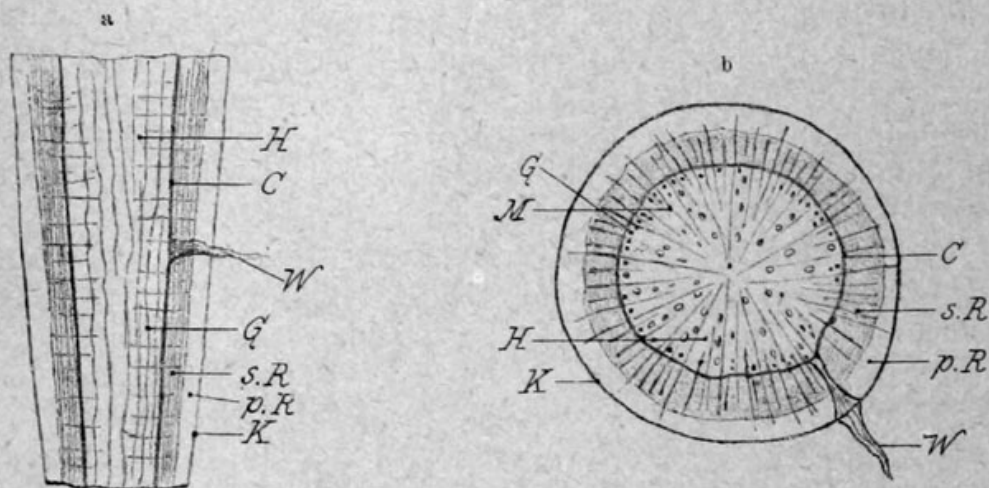 a
H
C
W
G
s.R
p.R
K
b
G
M
C
s.R
H
p.R
K
W